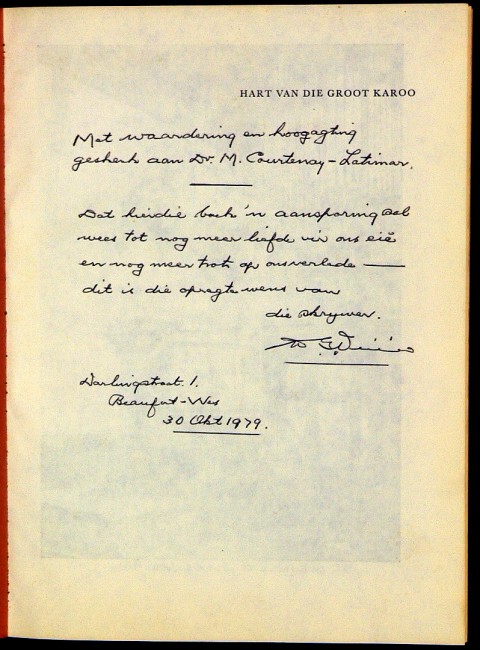 HART VAN DIE GROOT KAROO
Met waardering en hoogagting
geskenk aan Dr. M. Courtenay-Latimar.
Dat hierdie boek 'n aansporing sal
wees tot nog meer liefde vir ons eie
en nog meer trots op ons verlede —
dit is die opregte wens van
die skrywer.
Darlingstraat 1.
Beaufort-Wes
30 Okt 1979.